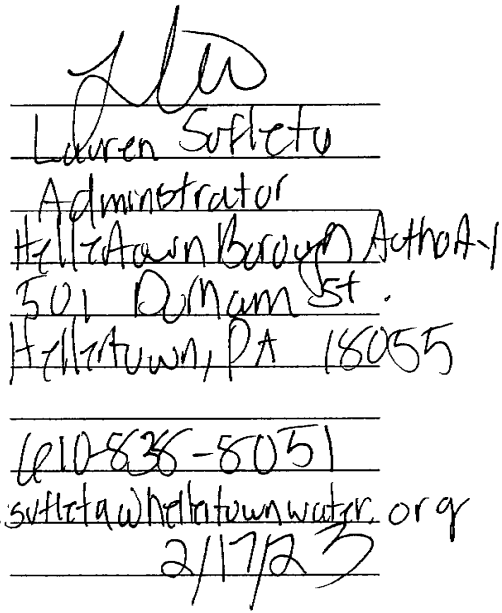 Lauren Sufleta
Administrator
Hellertown Borough Authority
501 Durham St.
Hellertown, PA 18055
610-838-8051
sufleta@hellertownwater.org
2/17/23